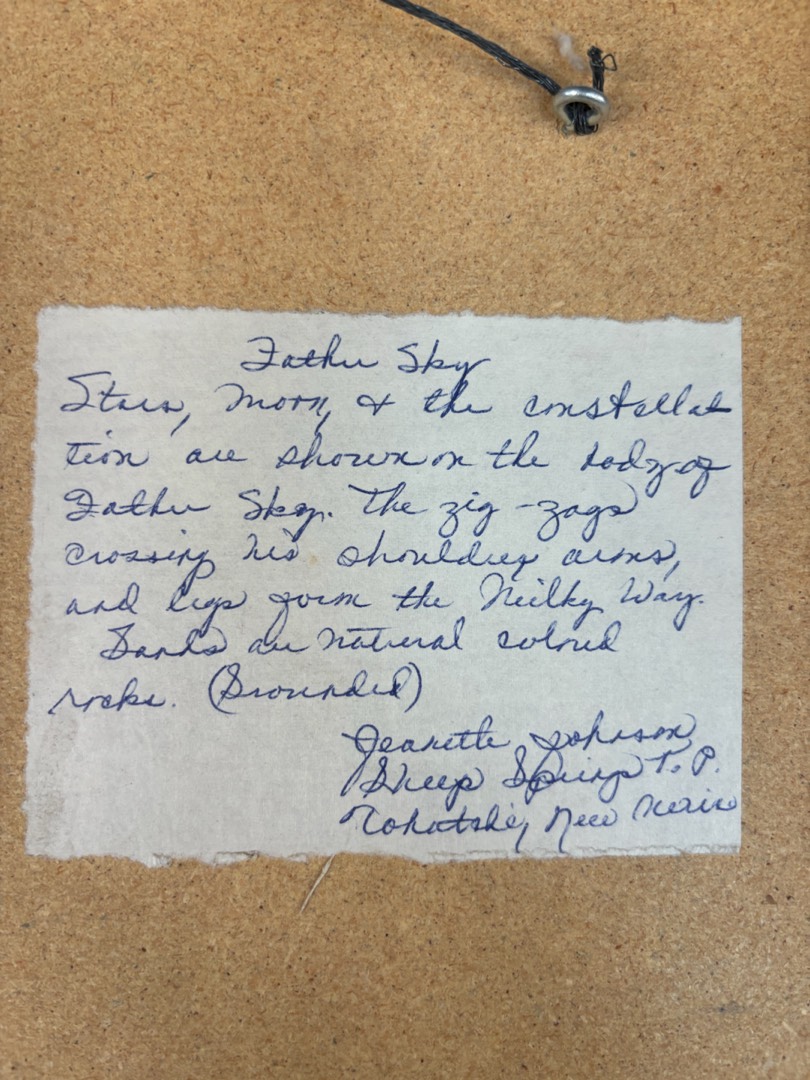 Father Sky
Stars, Moon, & the constellat
tion are shown on the body of
Father Sky. The zig-zags
crossing his shoulders arms,
and legs form the Milky Way.
Sands are natural colored
rocks. (Grounded)
Jeanette Johnson
Sheep Springs T. P.
Tohatchi, New Mexico